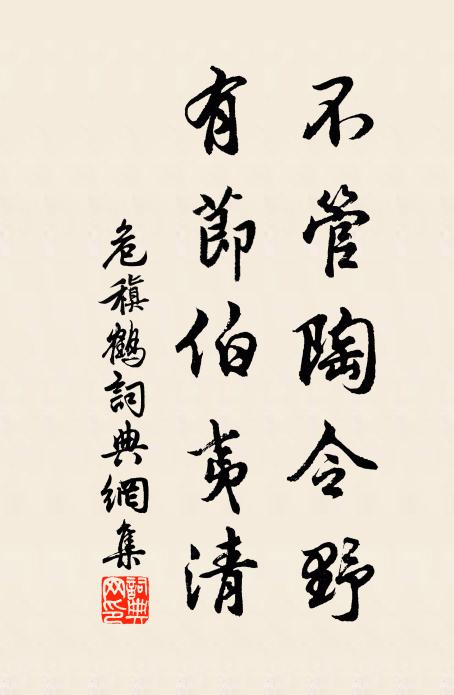 不管陶令野
有節伯夷清
危稹鶴詞典網集
詞典
网印